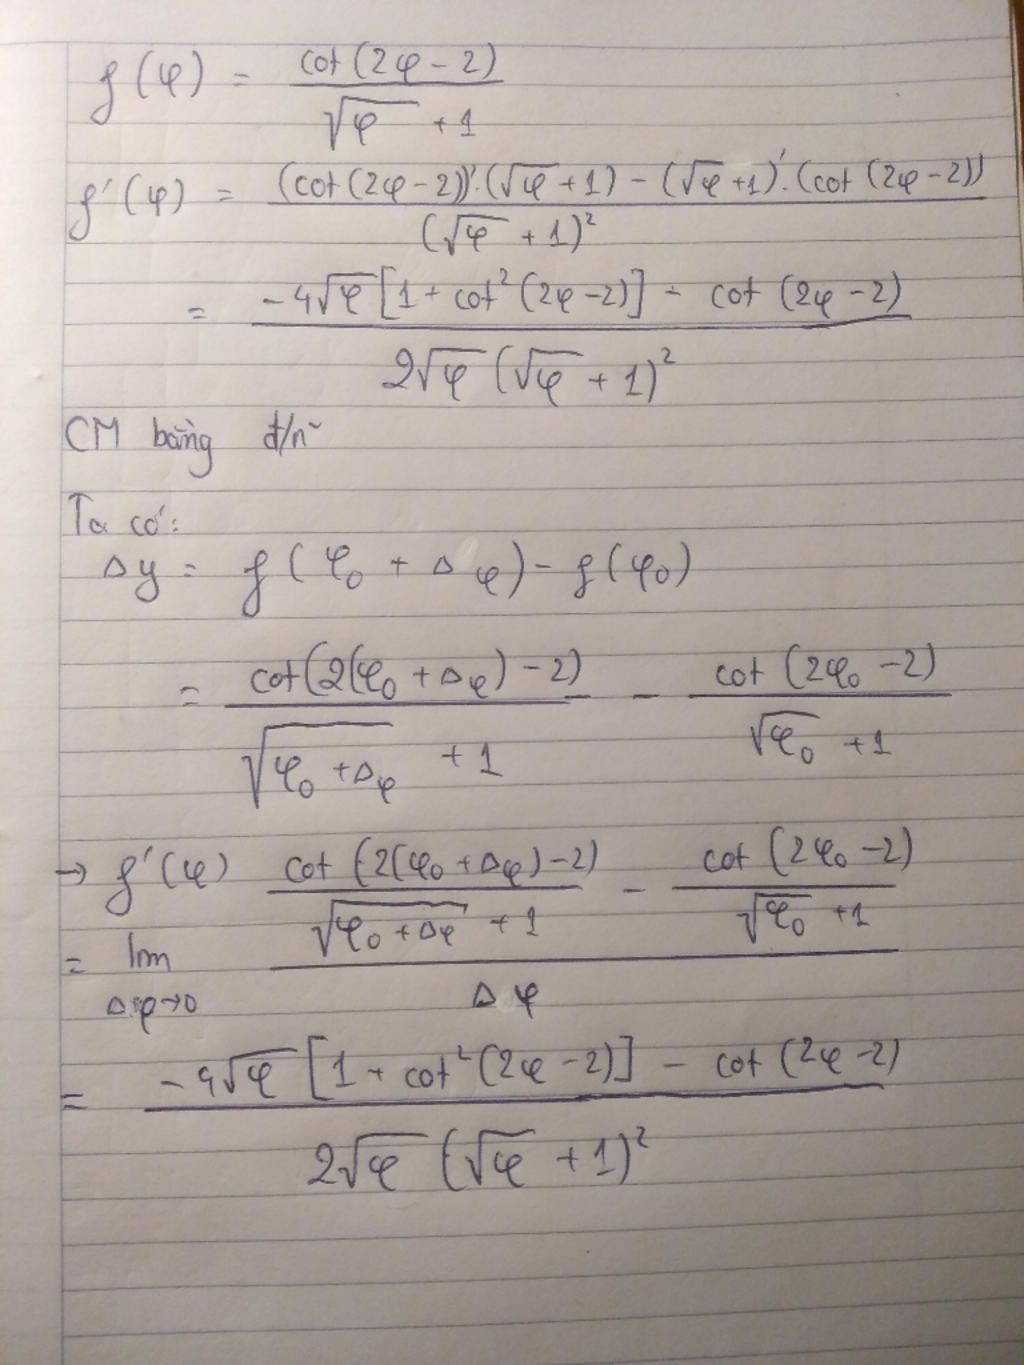 f(φ) = cot(2φ - 2) / √φ + 1
f'(φ) = (cot(2φ-2))'.(√φ+1) - (√φ+1)'.(cot(2φ-2)) / (√φ + 1)²
= -4√φ[1 + cot²(2φ-2)] - cot(2φ-2) / 2√φ(√φ+1)²
CM bằng đ/n~
Ta có:
Δy = f(φ₀ + Δφ) - f(φ₀)
= cot(2(φ₀ + Δφ) - 2) / √φ₀ + Δφ + 1 - cot(2φ₀ - 2) / √φ₀ + 1
→ f'(φ)
= lim Δφ→0 cot(2(φ₀ + Δφ) - 2) / √φ₀ + Δφ + 1 - cot(2φ₀ - 2) / √φ₀ + 1 / Δφ
= -4√φ[1 + cot²(2φ - 2)] - cot(2φ - 2) / 2√φ(√φ + 1)²